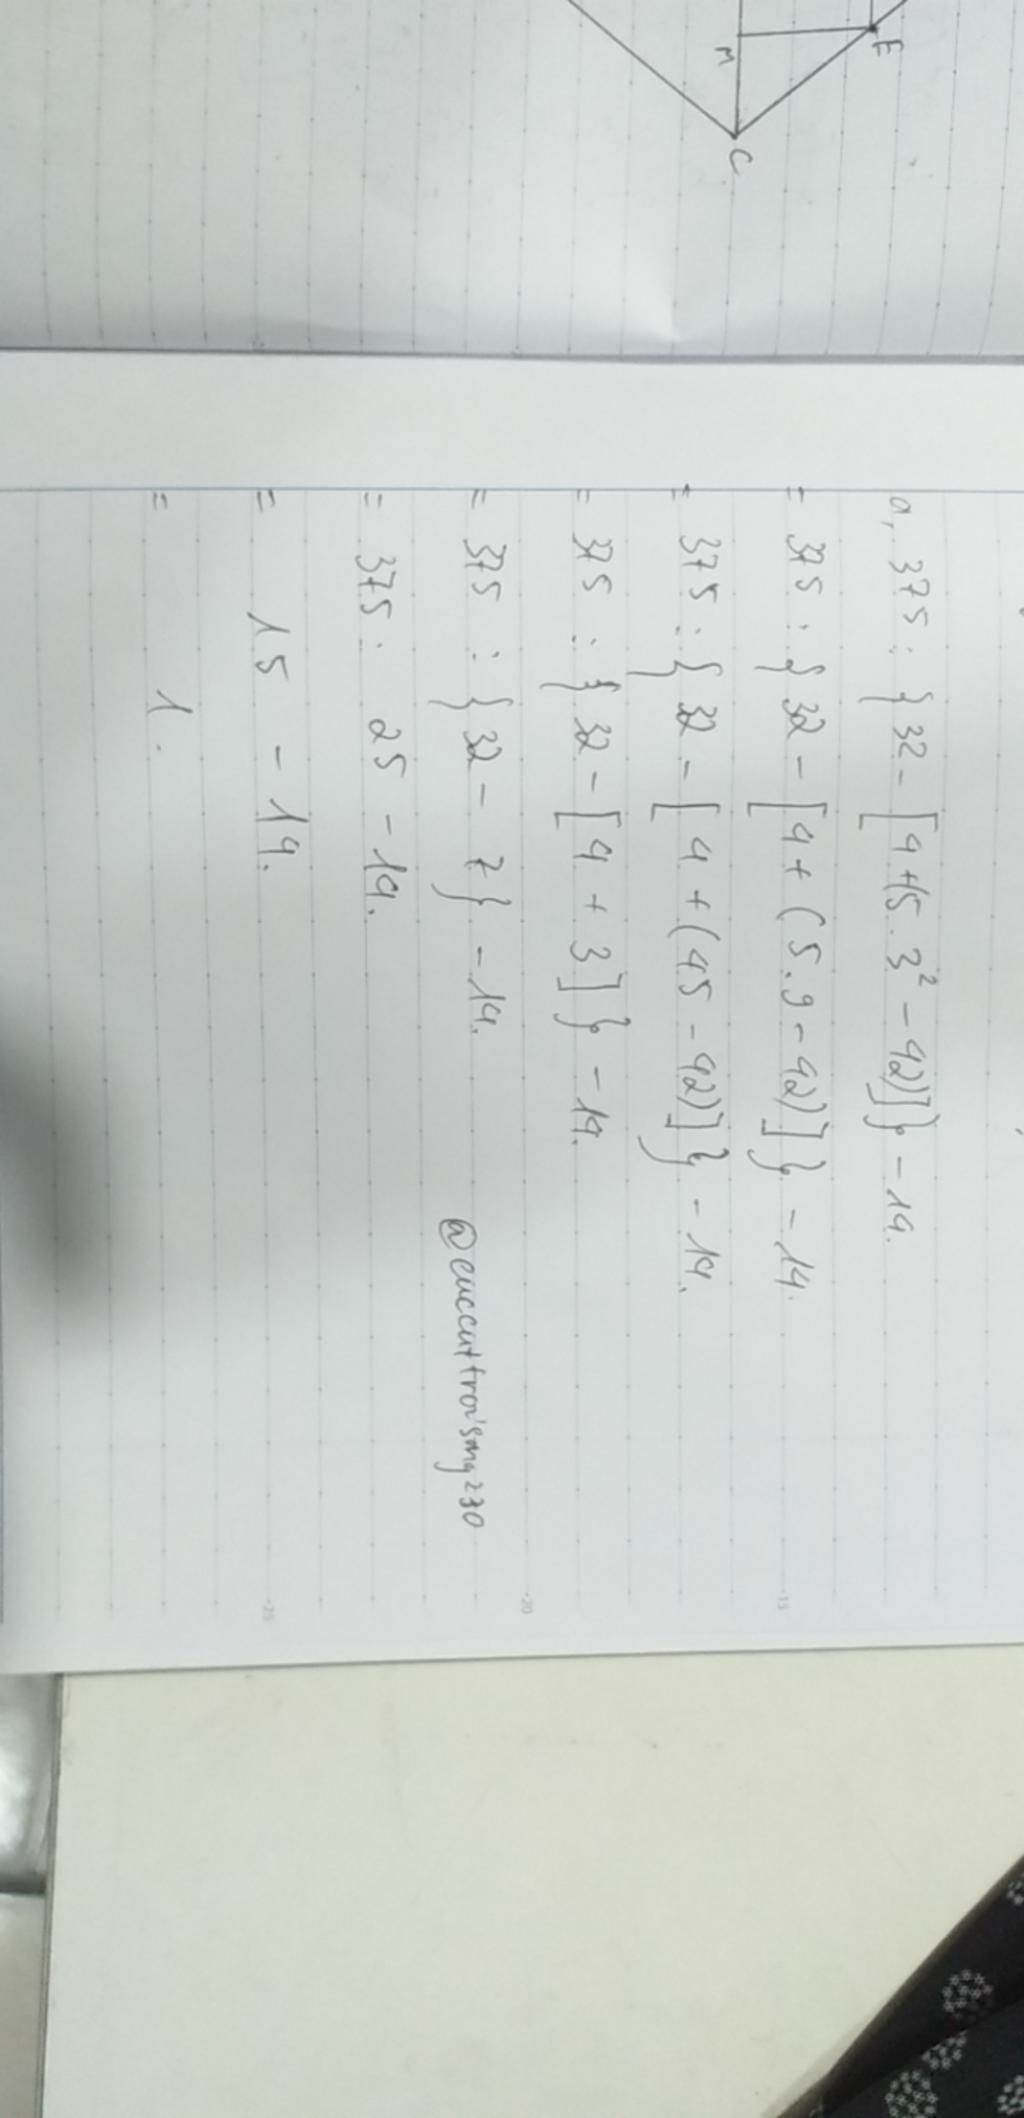 E
M
C
a, 375 : { 32 - [4 + (5 . 3² - 42)]} - 14.
= 375 : { 32 - [4 + (5.9 - 42)]} - 14.
= 375 : { 32 - [4 + (45 - 42)]} - 14.
= 375 : { 32 - [4 + 3]} - 14.
= 375 : { 32 - 7} - 14.
= 375 : 25 - 14.
= 15 - 14.
= 1.
15
20
25